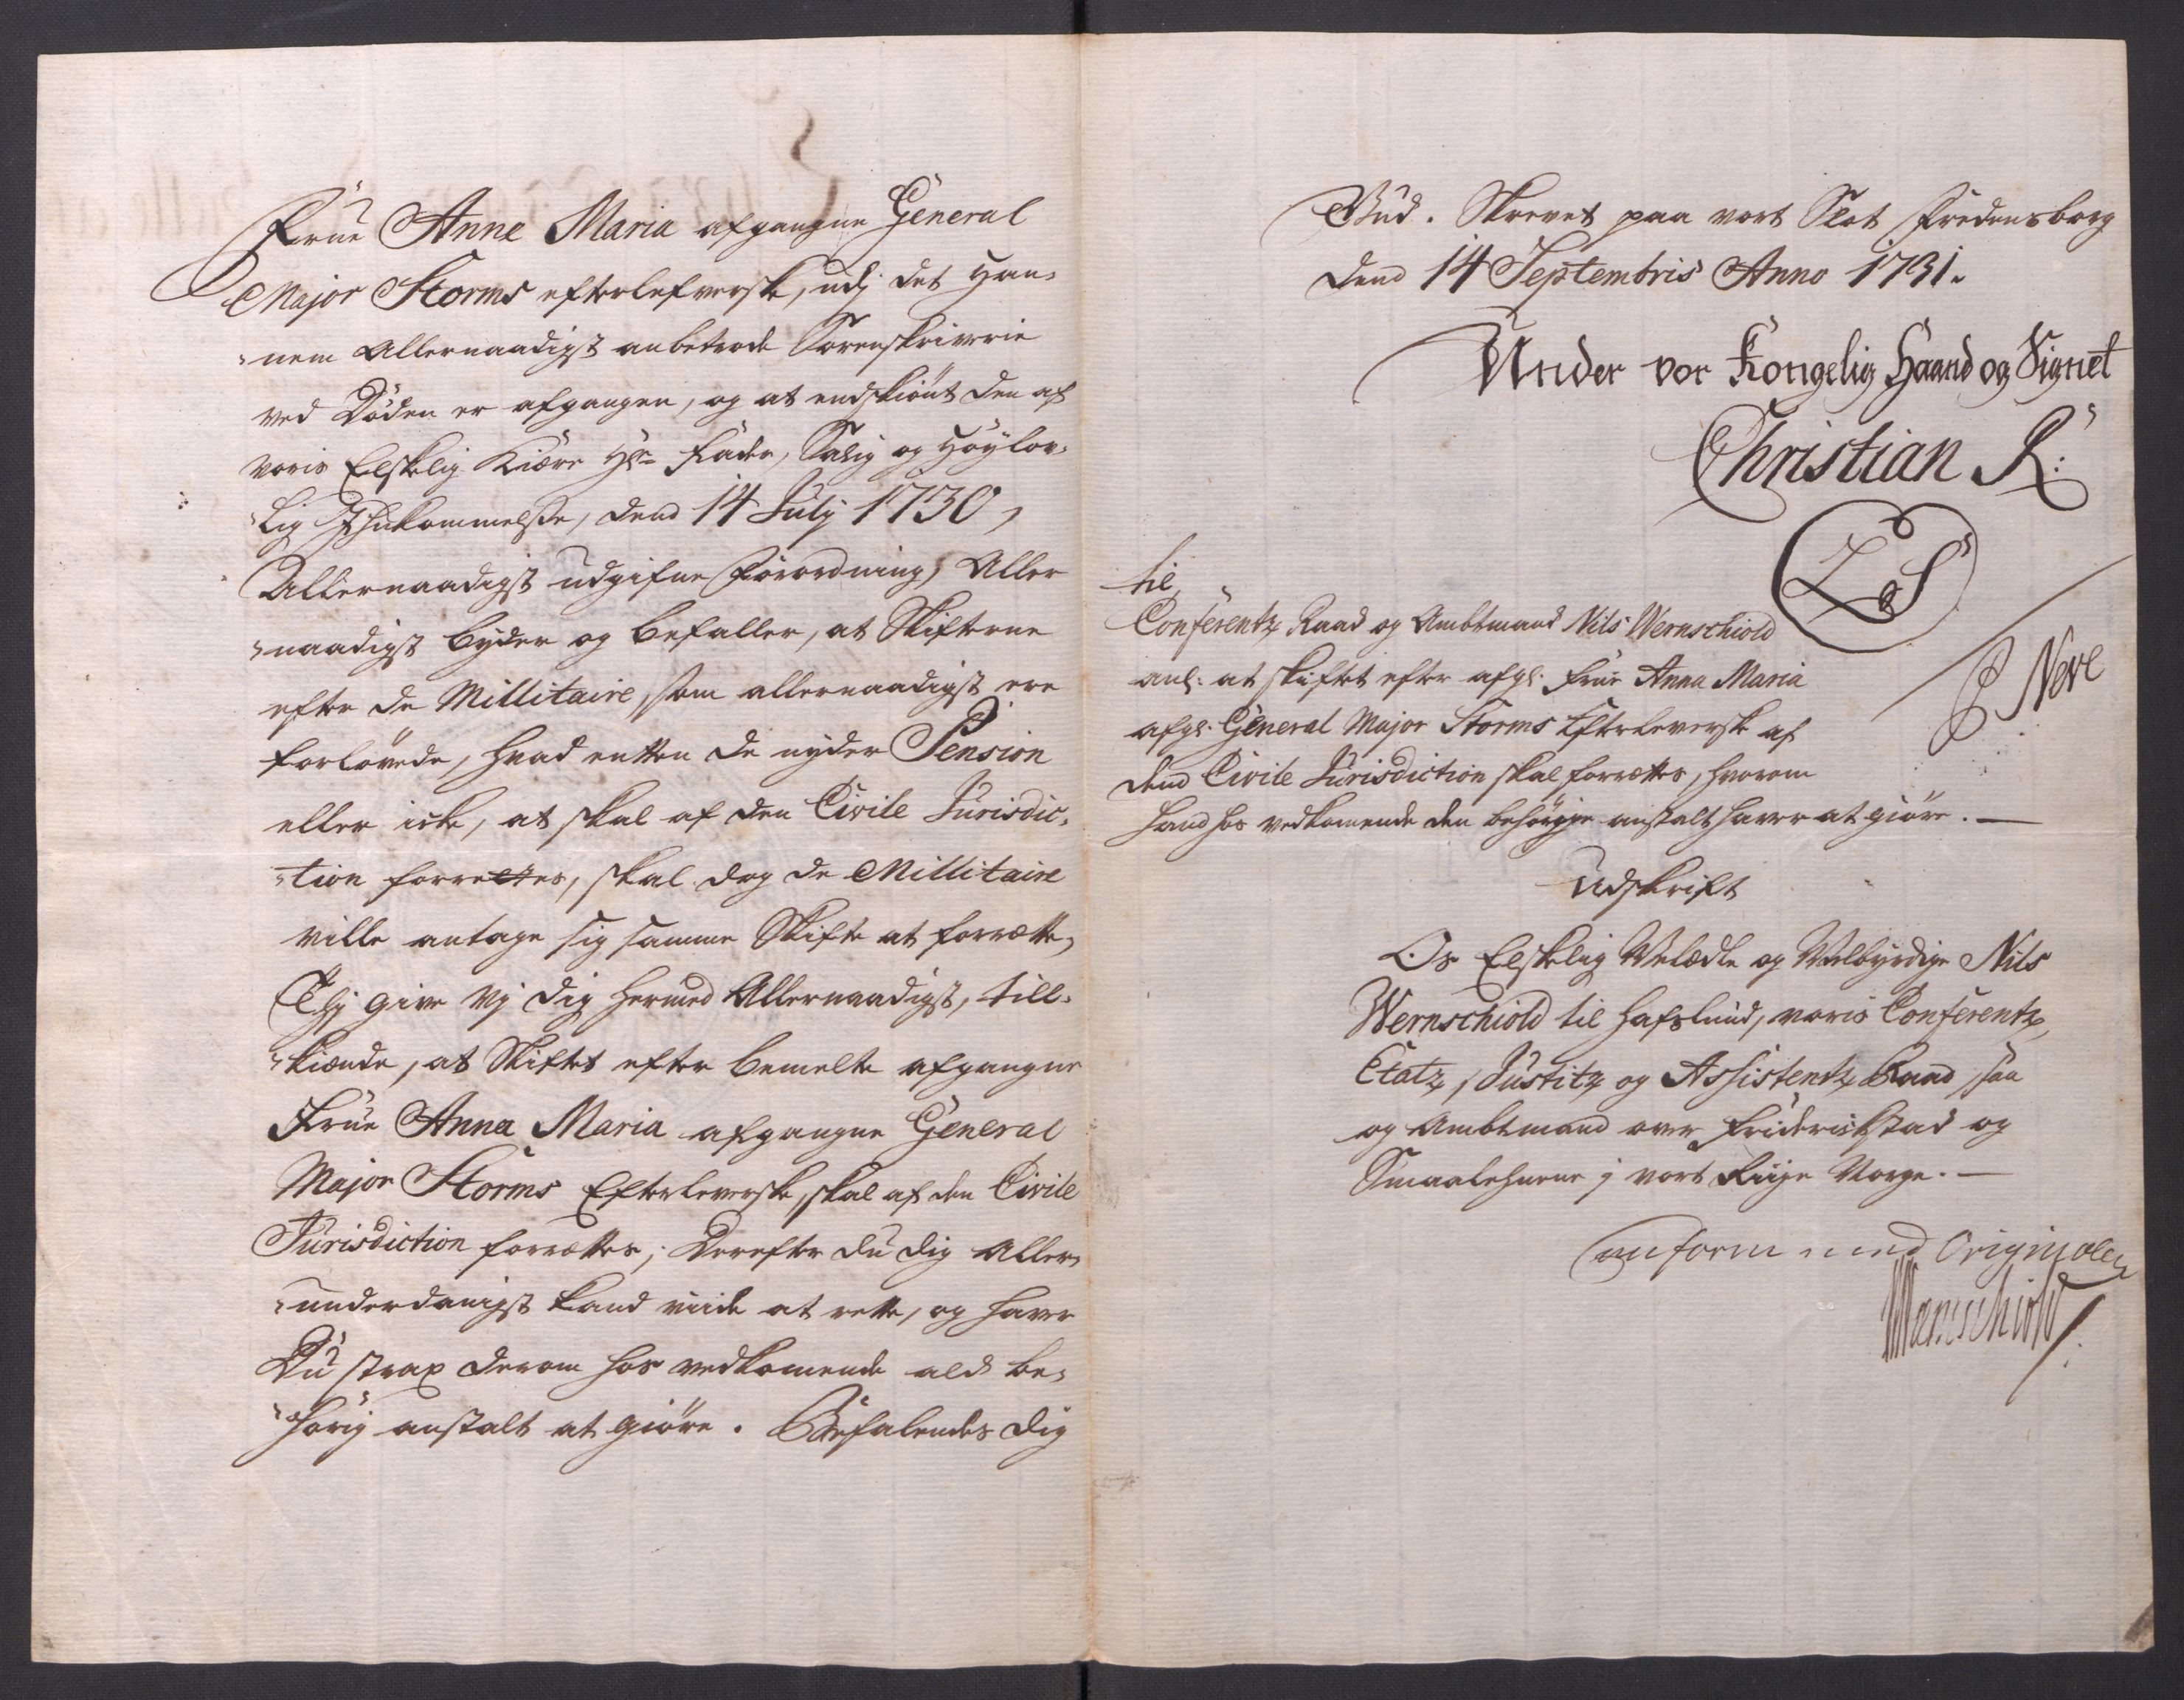 Frue Anne Maria afgangne General
Major Storms efterlefverske, udj det han-
nem Allernaadigst anbetrode Sorenskriverie
ved Döden er afgangen, og at endskiönt den af
voris Elskelig Kiære Hr. Fader, Salig og Höylov-
lig Ihukommelse, dend 14 July 1730,
Allernaadigst udgifne Forordning, Aller
naadigst byder og befaller, at Skifterne
efter de Millitaire, som allernaadigst ere
forlövede, hvad enten de nyder Pension
eller icke, at skal af den Civile Jurisdic-
tion forrettes, skal dog de Millitaire
ville antage sig samme Skifte at forrætte,
Thj give Vj dig hermed Allernaadigst, till-
kiende, at Skiftet efter bemelte afgangne
Frue Anna Maria afgangne General
Major Storms Efterleverske, skal af den Civile
Jurisdiction forrættes; Derefter du dig Aller-
underdanigst kand viide at rette, og haver
Du strax derom hos vedkomende ald be-
hörig anstalt at giöre. Befalendes dig
Gud. Skrevet paa vort Slot Fredensborg
dend 14 Septembris Anno 1731.
Under vor Kongelig Haand og Signet
Christian R:
L S
til
Conferentz Raad og Ambtmand Nils Wernschiold
anl: at skiftet efter afgl: Frue Anna Maria
afgl: General Major Storms Efterleverske af
dend Civile Jurisdiction skal forrættes, hvorom
hand hos vedkomende den behörige anstalt haver at giöre.
Udskrift
Os Elskelig Velædle og Velbyrdige Nils
Wernschiold til Hafslund, voris Conferentz,
Etatz, Justitz og Assistentz Raad, saa
og Ambtmand over Friderichstad og
Smaalehnene j vort Riige Norge.
Conform med Originalen
Wernschiold